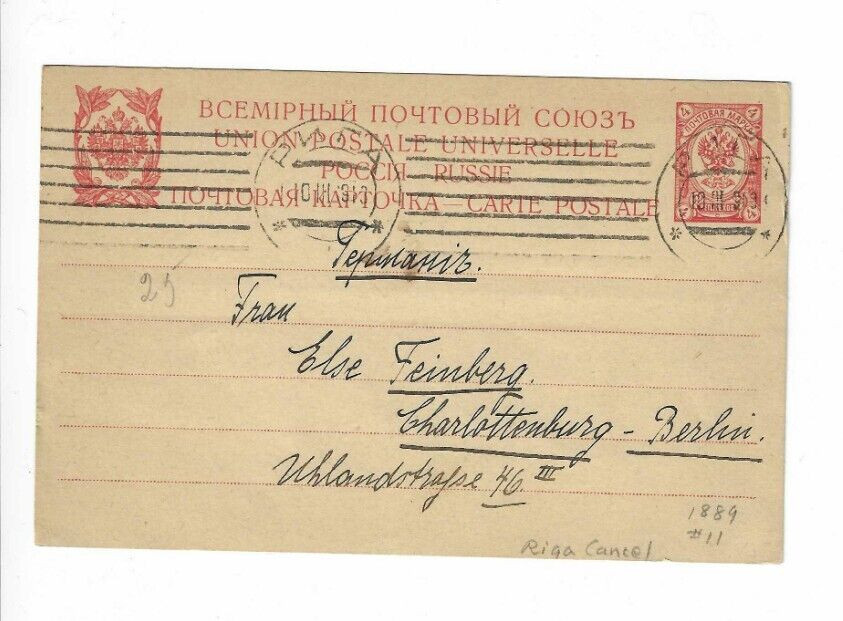 ВСЕМІРНЫЙ ПОЧТОВЫЙ СОЮЗЪ
UNION POSTALE UNIVERSELLE
РОССІЯ RUSSIE
ПОЧТОВАЯ КАРТОЧКА — CARTE POSTALE
4 4
ПОЧТОВАЯ МАРКА
РИГА
10 III 913
10 III 913
Германія.
25
Frau
Else Feinberg.
Charlottenburg - Berlin.
Uhlandstraße 46. III
1889
#11
Riga Cancel